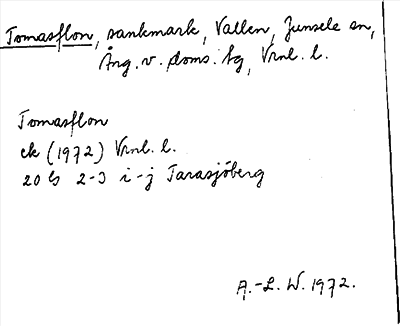 Tomasflon, sankmark, Vallen, Junsele sn,
Ång. v. doms. hg, Vrnl. l.
Tomasflon
ek (1972) Vrnl. l.
20 G 2-3 i-j Tarasjöberg
A.-L. W. 1972.